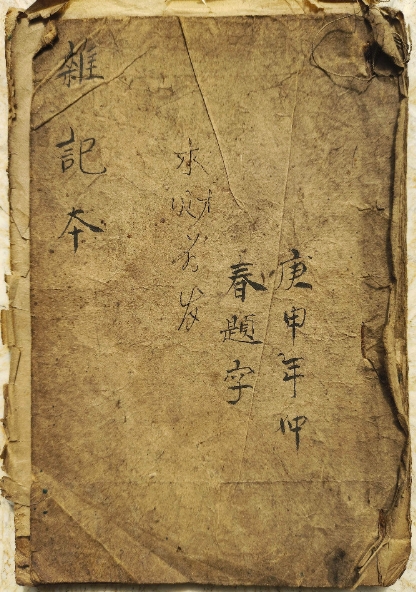 庚申年仲
春題字
雜記本